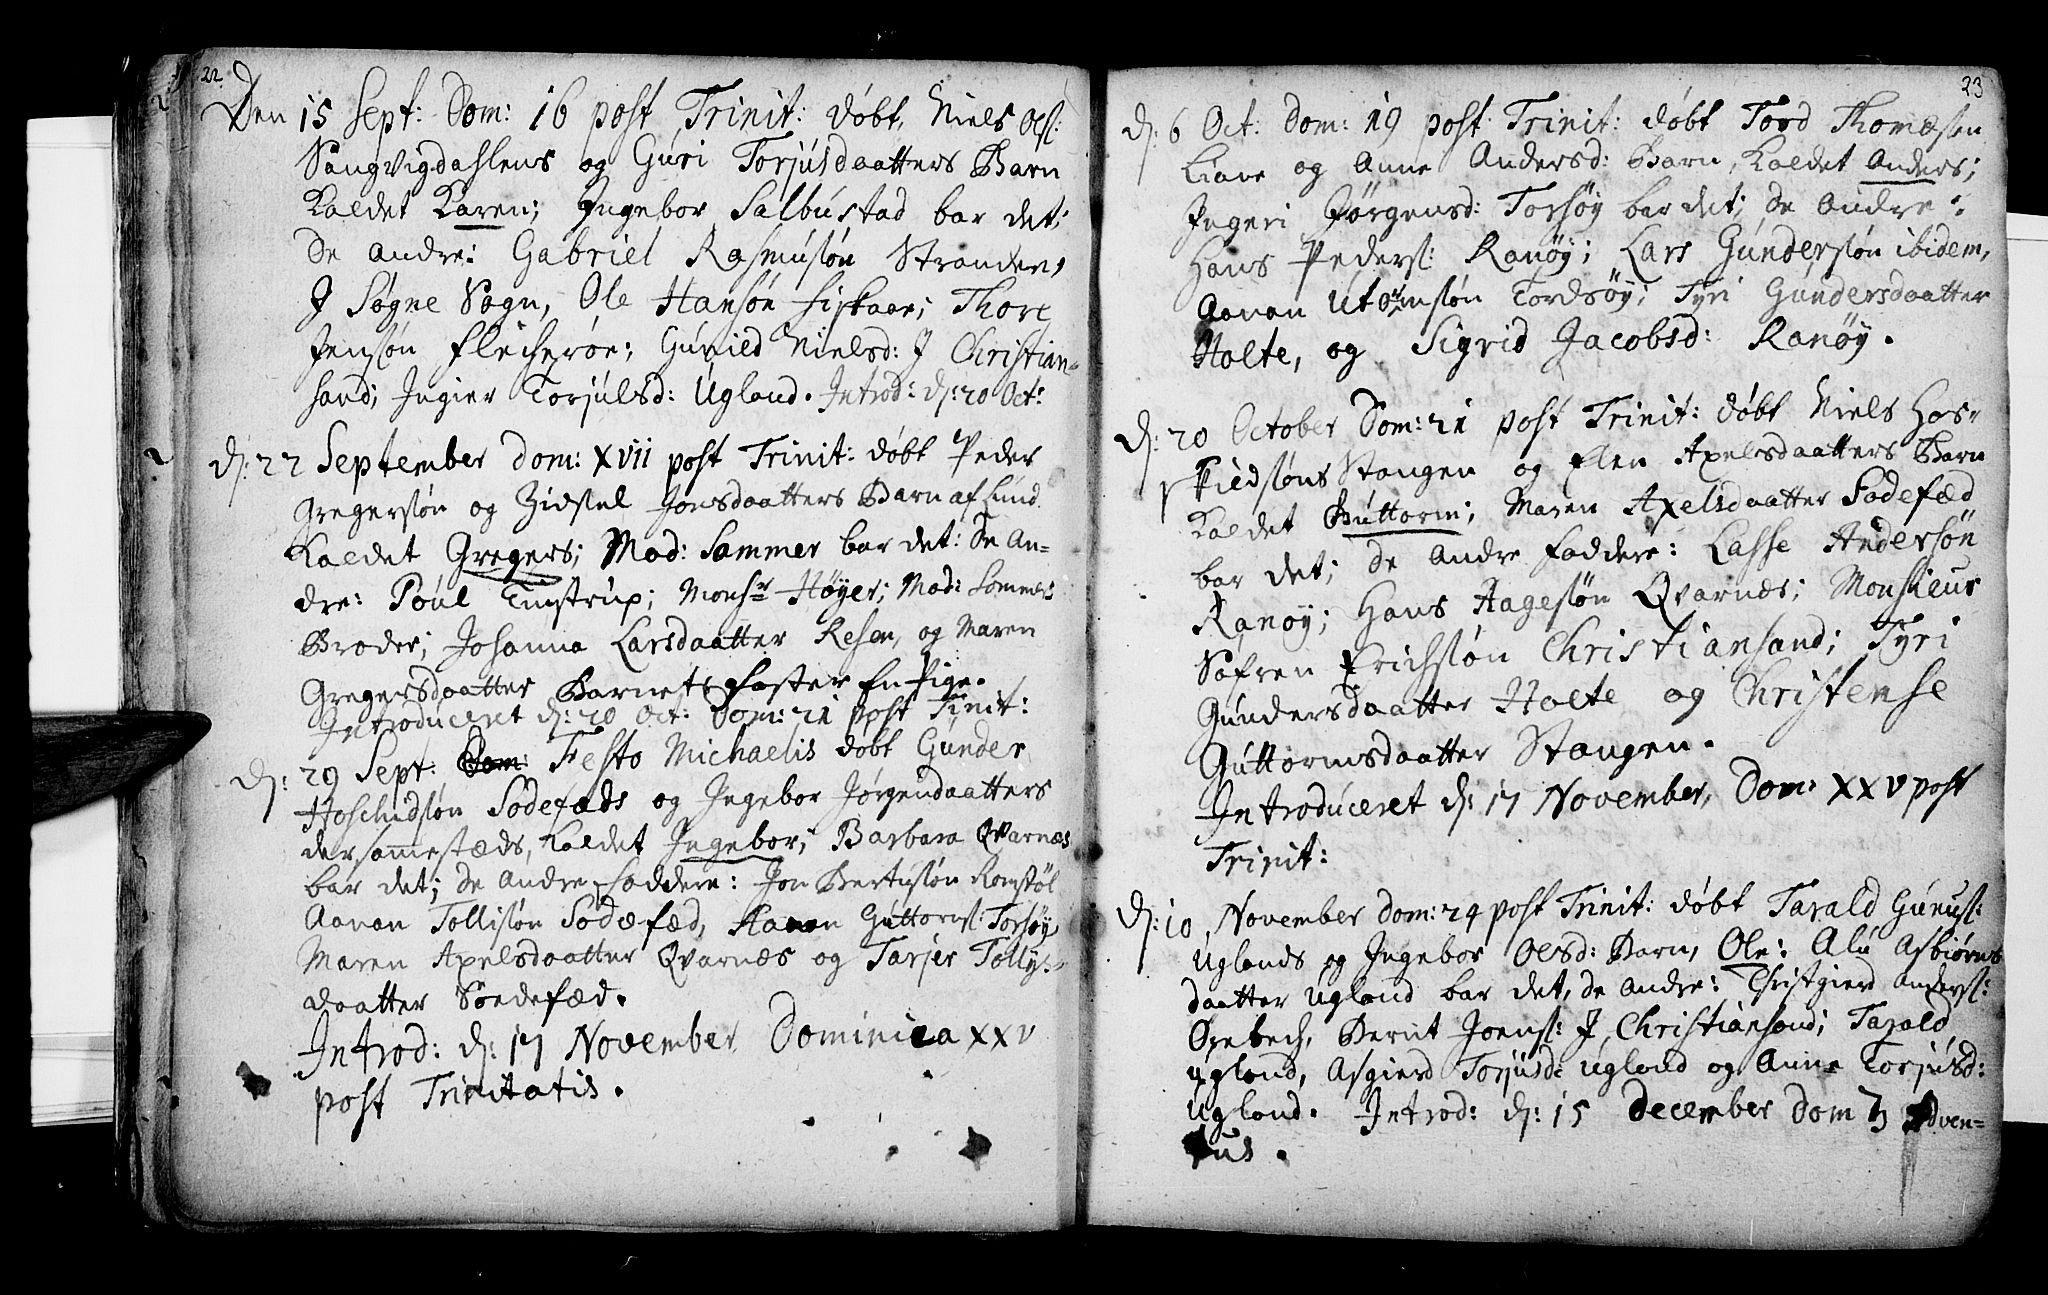 22.
Den 15 Sept: Dom: 16 post Trinit: døbt, Niels Ols:
Sangvigdahlens og Guri Torjusdaatters Barn
Kaldet Karen; Ingebor Salbustad bar det;
De Andre: Gabriel Rasmusøn Stranden,
J Søgne Sogn, Ole Hansøn Fiskaae; Thore
Jensøn Flecherøe; Gunild Nielsd: J Christian-
sand; Ingier Torjulsd: Ugland. Introd: d: 20 Oct:
d: 22 September Dom: XVII post Trinit: døbt Peder
Gregersøn og Zidsel Jonsdaatters Barn af Lund
Kaldet Gregers; Mad: Sammer bar det: De An-
dre: Poul Tinstrup; Monsr Høyer; Mad: Sommers
Broder; Johanna Larsdaatter Resen, og Maren
Gregersdaatter Barnets Faster En Pige.
Introduceret d: 20 Oct: Dom: 21 post Tinit:
d: 29 Sept: Dom: Festo Michaelis døbt Gunder
Hoschildsøn Sodefæds og Ingebor Jørgendaatters
dersammestæds, kaldet Ingebor; Barbara Qvarnæs
bar det; De Andre Faddere: Jon Bertusøn Romstøl
Aanon Tollisøn Sodefæd, Aanon Guttorms: Torsøy
Maren Axelsdaatter Qvarnæs og Tarjer Tollys-
daatter Sødefæd.
Introd: d: 17 November Dominica XXV
post Trinitatis.
23
d: 6 Oct: Dom: 19 post Trinit: døbt Tord Thomæsen
Liane og Anne Andersd: Barn, kaldet Anders;
Ingeri Jørgensd: Torsøy bar det; De Andre:
Hans Peders: Ranøy; Lars Gundersøn ibidem,
Aanon Utomsøn Tordsøy; Tyri Gundersdaatter
Holte, og Sigrid Jacobsd: Ranøy.
d: 20 October Dom: 21 post Trinit: døbt Niels Hos-
kieldsøns Stangen og Elen Axelsdaatters Barn
Kaldet Guttorm; Maren Axelsdaatter Sodefæd
bar det; De Andre Faddere: Lasse Andersøn
Ranøy; Hans Aagesøn Qvarnæs; Monsieur
Søfren Erichsøn Christiansand; Tyri
Gundersdaatter Holte og Christense
Guttormsdaatter Stangen.
Introduceret d: 17 November, Dom: XXV post
Trinit:
d: 10 November Dom: 24 post Trinit: døbt Tarald Gunus:
Uglands og Ingebor Olsd: Barn, Ole: Alu Asbiørns
daatter Ugland bar det, De Andre: Christgierd Anders:
Øgebech, Bernt Joens: J Christiansand; Tarald
Ugland, Asgierd Torjusd: Ugland og Anne Torjusd:
Ugland. Introd: d: 15 December Dom 3 Adven-
tus.